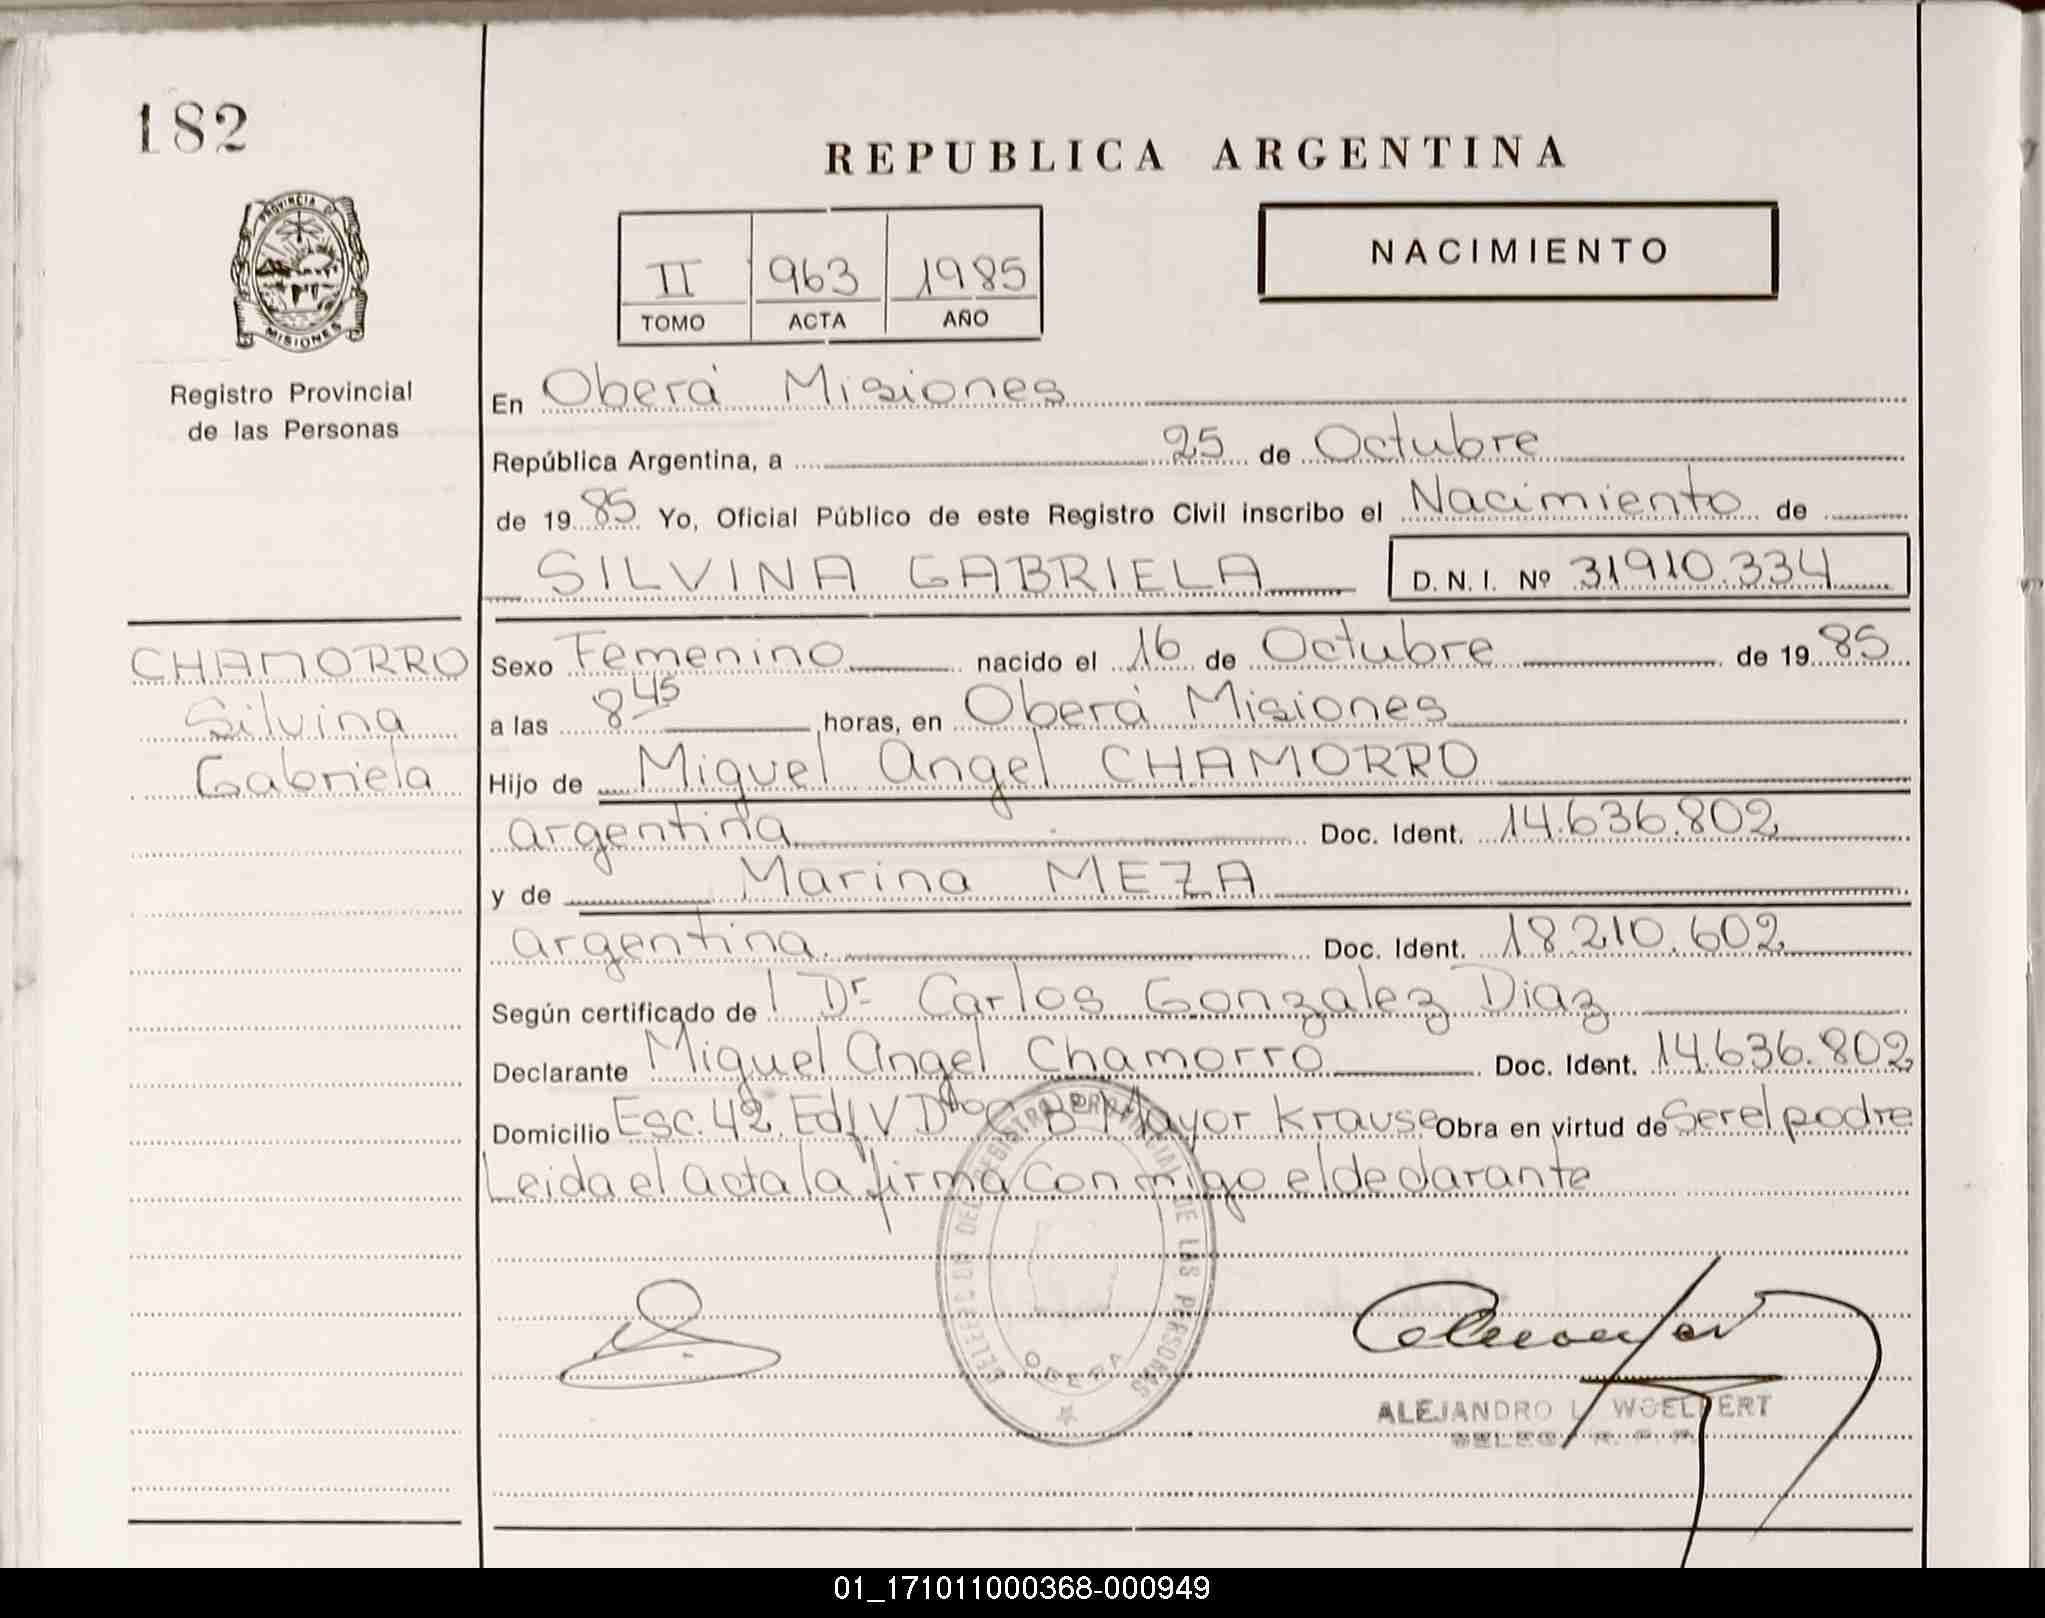 182
REPUBLICA ARGENTINA
PROVINCIA DE
MISIONES
Registro Provincial
de las Personas
II 963 1985
TOMO ACTA AÑO
NACIMIENTO
En Oberá Misiones
República Argentina, a 25 de Octubre
de 1985 Yo, Oficial Público de este Registro Civil inscribo el Nacimiento de
SILVINA GABRIELA D. N. I. Nº 31910.334
CHAMORRO
Silvina
Gabriela
Sexo Femenino nacido el 16 de Octubre de 1985
a las 8 45 horas, en Oberá Misiones
Hijo de Miguel Angel CHAMORRO
argentina Doc. Ident. 14.636.802
y de Marina MEZA
argentina Doc. Ident. 18.210.602
Según certificado de l Dr Carlos Gonzalez Diaz
Declarante Miguel Angel Chamorro Doc. Ident. 14.636.802
Domicilio Esc. 42 Edf V Dto C Bº Mayor Krause Obra en virtud de Ser el padre
Leida el acta la firma conmigo el declarante
REGISTRO PROVINCIAL DE LAS PERSONAS
OBERA
ALEJANDRO L. WOELFERT
01_171011000368-000949